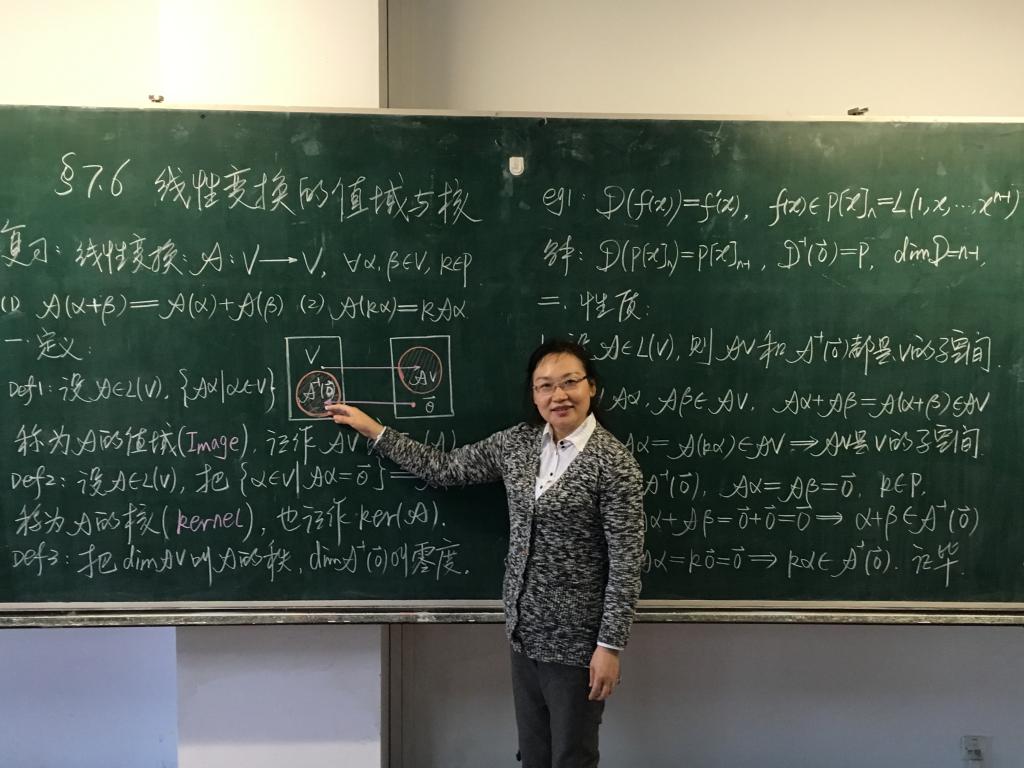 §7.6 线性变换的值域与核
复习: 线性变换: A: V→V, ∀α, β∈V, k∈P
(1) A(α+β)=A(α)+A(β) (2) A(kα)=kAα
一. 定义:
V
A⁻¹(0⃗)
AV
θ⃗
Def1: 设A∈L(V), {Aα|α∈V}
称为A的值域(Image), 记作AV
Def2: 设A∈L(V), 把{α∈V|Aα=0⃗}=
称为A的核(kernel), 也记作ker(A).
Def3: 把dimAV叫A的秩, dimA⁻¹(0⃗)叫零度.
eg1: D(f(x))=f'(x), f(x)∈P[x]ₙ=L(1,x,…,xⁿ⁻¹)
解: D(P[x]ₙ)=P[x]ₙ₋₁, D⁻¹(0⃗)=P, dimD=n-1,
二. 性质:
设A∈L(V), 则AV和A⁻¹(0⃗)都是V的子空间.
Aα, Aβ∈AV, Aα+Aβ=A(α+β)∈AV
Aα=A(kα)∈AV⇒AV是V的子空间.
A⁻¹(0⃗), Aα=Aβ=0⃗, k∈P.
α+Aβ=0⃗+0⃗=0⃗⇒α+β∈A⁻¹(0⃗)
Aα=k0⃗=0⃗⇒kα∈A⁻¹(0⃗). 证毕.